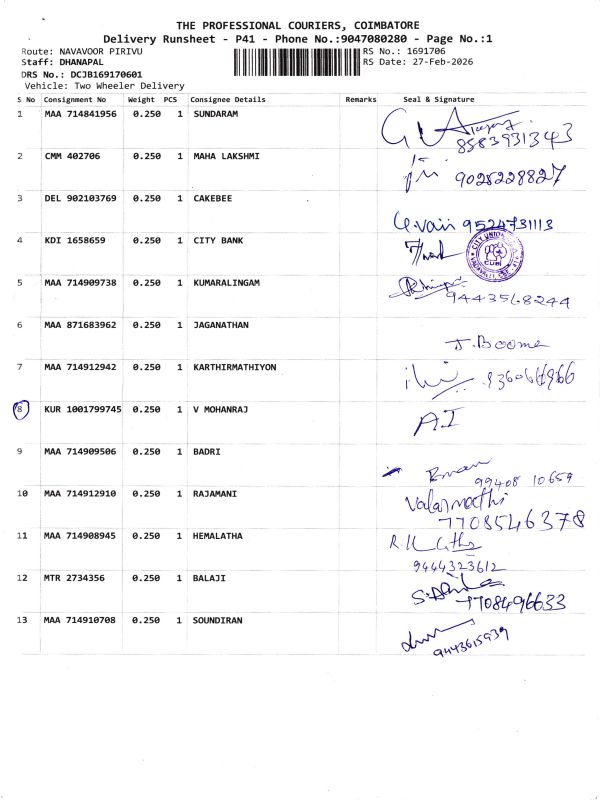 THE PROFESSIONAL COURIERS, COIMBATORE
Delivery Runsheet - P41 - Phone No.:9047080280 - Page No.:1
Route: NAVAVOOR PIRIVU RS No.: 1691706
Staff: DHANAPAL RS Date: 27-Feb-2026
DRS No.: DCJB169170601
Vehicle: Two Wheeler Delivery
S No Consignment No Weight PCS Consignee Details Remarks Seal & Signature
1 MAA 714841956 0.250 1 SUNDARAM
8583931343
2 CMM 402706 0.250 1 MAHA LAKSHMI
9025228827
3 DEL 902103769 0.250 1 CAKEBEE
9524731113
4 KDI 1658659 0.250 1 CITY BANK
CITY UNION
CUB
5 MAA 714909738 0.250 1 KUMARALINGAM
9443568244
6 MAA 871683962 0.250 1 JAGANATHAN
J.Booma
7 MAA 714912942 0.250 1 KARTHIRMATHIYON
8 KUR 1001799745 0.250 1 V MOHANRAJ
A.I
9 MAA 714909506 0.250 1 BADRI
99408 10659
10 MAA 714912910 0.250 1 RAJAMANI
Valarmathi
7708546378
11 MAA 714908945 0.250 1 HEMALATHA
9444323612
12 MTR 2734356 0.250 1 BALAJI
7708496633
13 MAA 714910708 0.250 1 SOUNDIRAN
9443615939